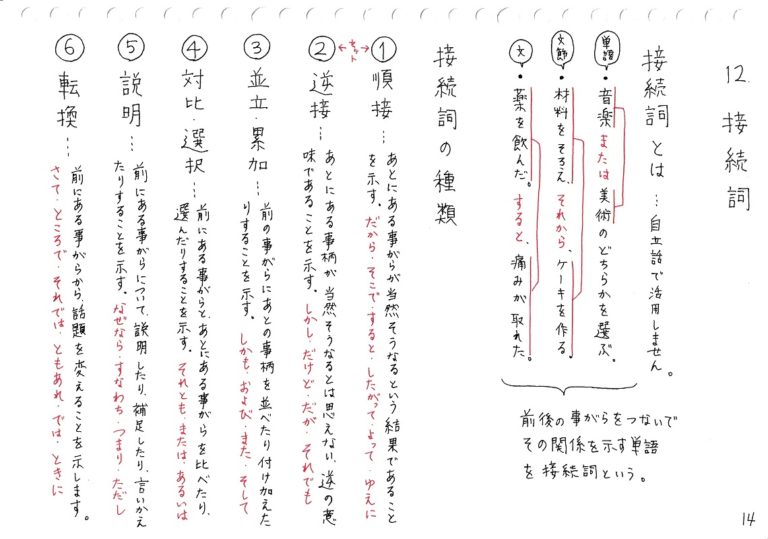 12. 接続詞
接続詞とは…自立語で活用しません。
単語
・音楽または美術のどちらかを選ぶ。
文節
・材料をそろえ、それから、ケーキを作る。
文
・薬を飲んだ。すると、痛みが取れた。
前後の事がらをつないで
その関係を示す単語
を接続詞という。
接続詞の種類
①順接…あとにある事がらが当然そうなるという結果であること
を示す。だから・そこで・すると・したがって・よって・ゆえに
セット
②逆接…あとにある事柄が当然そうなるとは思えない、逆の意
味であることを示す。しかし・だけど・だが・それでも
③並立・累加…前の事がらにあとの事柄を並べたり付け加えた
りすることを示す。しかも・および・また・そして
④対比・選択…前にある事がらと、あとにある事がらを比べたり、
選んだりすることを示す。それとも・または・あるいは
⑤説明…前にある事がらについて、説明したり、補足したり、言いかえ
たりすることを示す。なぜなら・すなわち・つまり・ただし
⑥転換…前にある事がらから、話題を変えることを示します。
さて・ところで・それでは・ともあれ・では・ときに
14